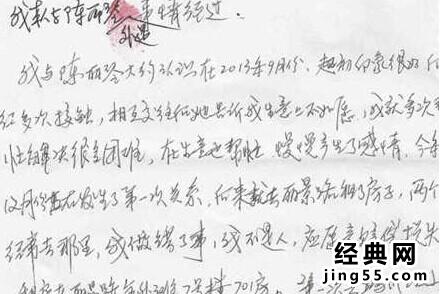 我与陈丽容事情经过.
外遇
我与陈丽容大约认识在2013年9月份.起初印象很好
经多次接触,相互交往后她告诉我生意上不如意,我就多次
忙解决很多困难,在生意也帮忙.慢慢产生了感情.今年
月份左右发生了第一次关系.后来就去丽景路租了房子,两个
经常去那里,我做错了事,我不是人,应愿意赔偿损失
701房
经典网
jing55.com